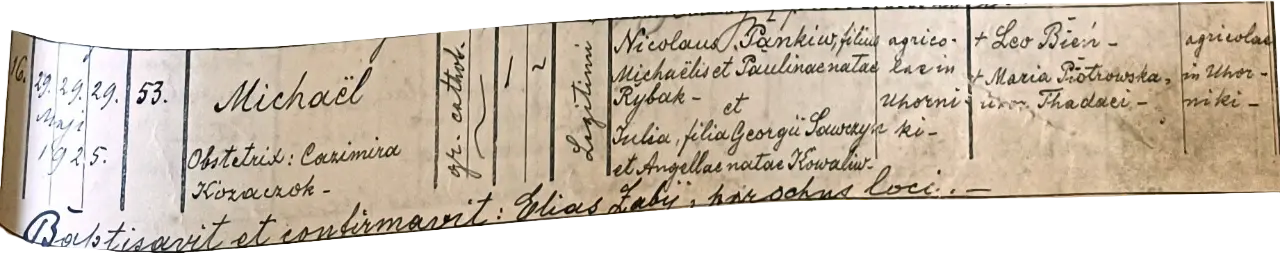 16.
29. 29. 29.
Maji
1925.
53.
Michaël
Obstetrix: Cazimira
Kozaczok -
gr. cathol.
1
2
Legitimi
Nicolaus Pańkiw, filius
Michaëlis et Paulinae natae
Rybak -
et
Iulia, filia Georgii Sawczyn
et Angellae natae Kowaliw -
agrico-
lae in
Uhorni-
ki -
+ Leo Bień -
+ Maria Piotrowska,
uxor Thadaei, -
agricolae
in Uhor-
niki -
Baptisavit et confirmavit: Elias Zabij, parochus loci. -